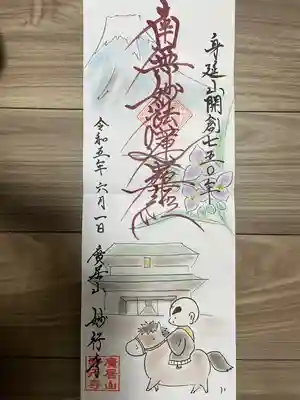 身延山開創七五〇年
南無妙法蓮華経
令和五年六月一日
廣普山 妙行寺